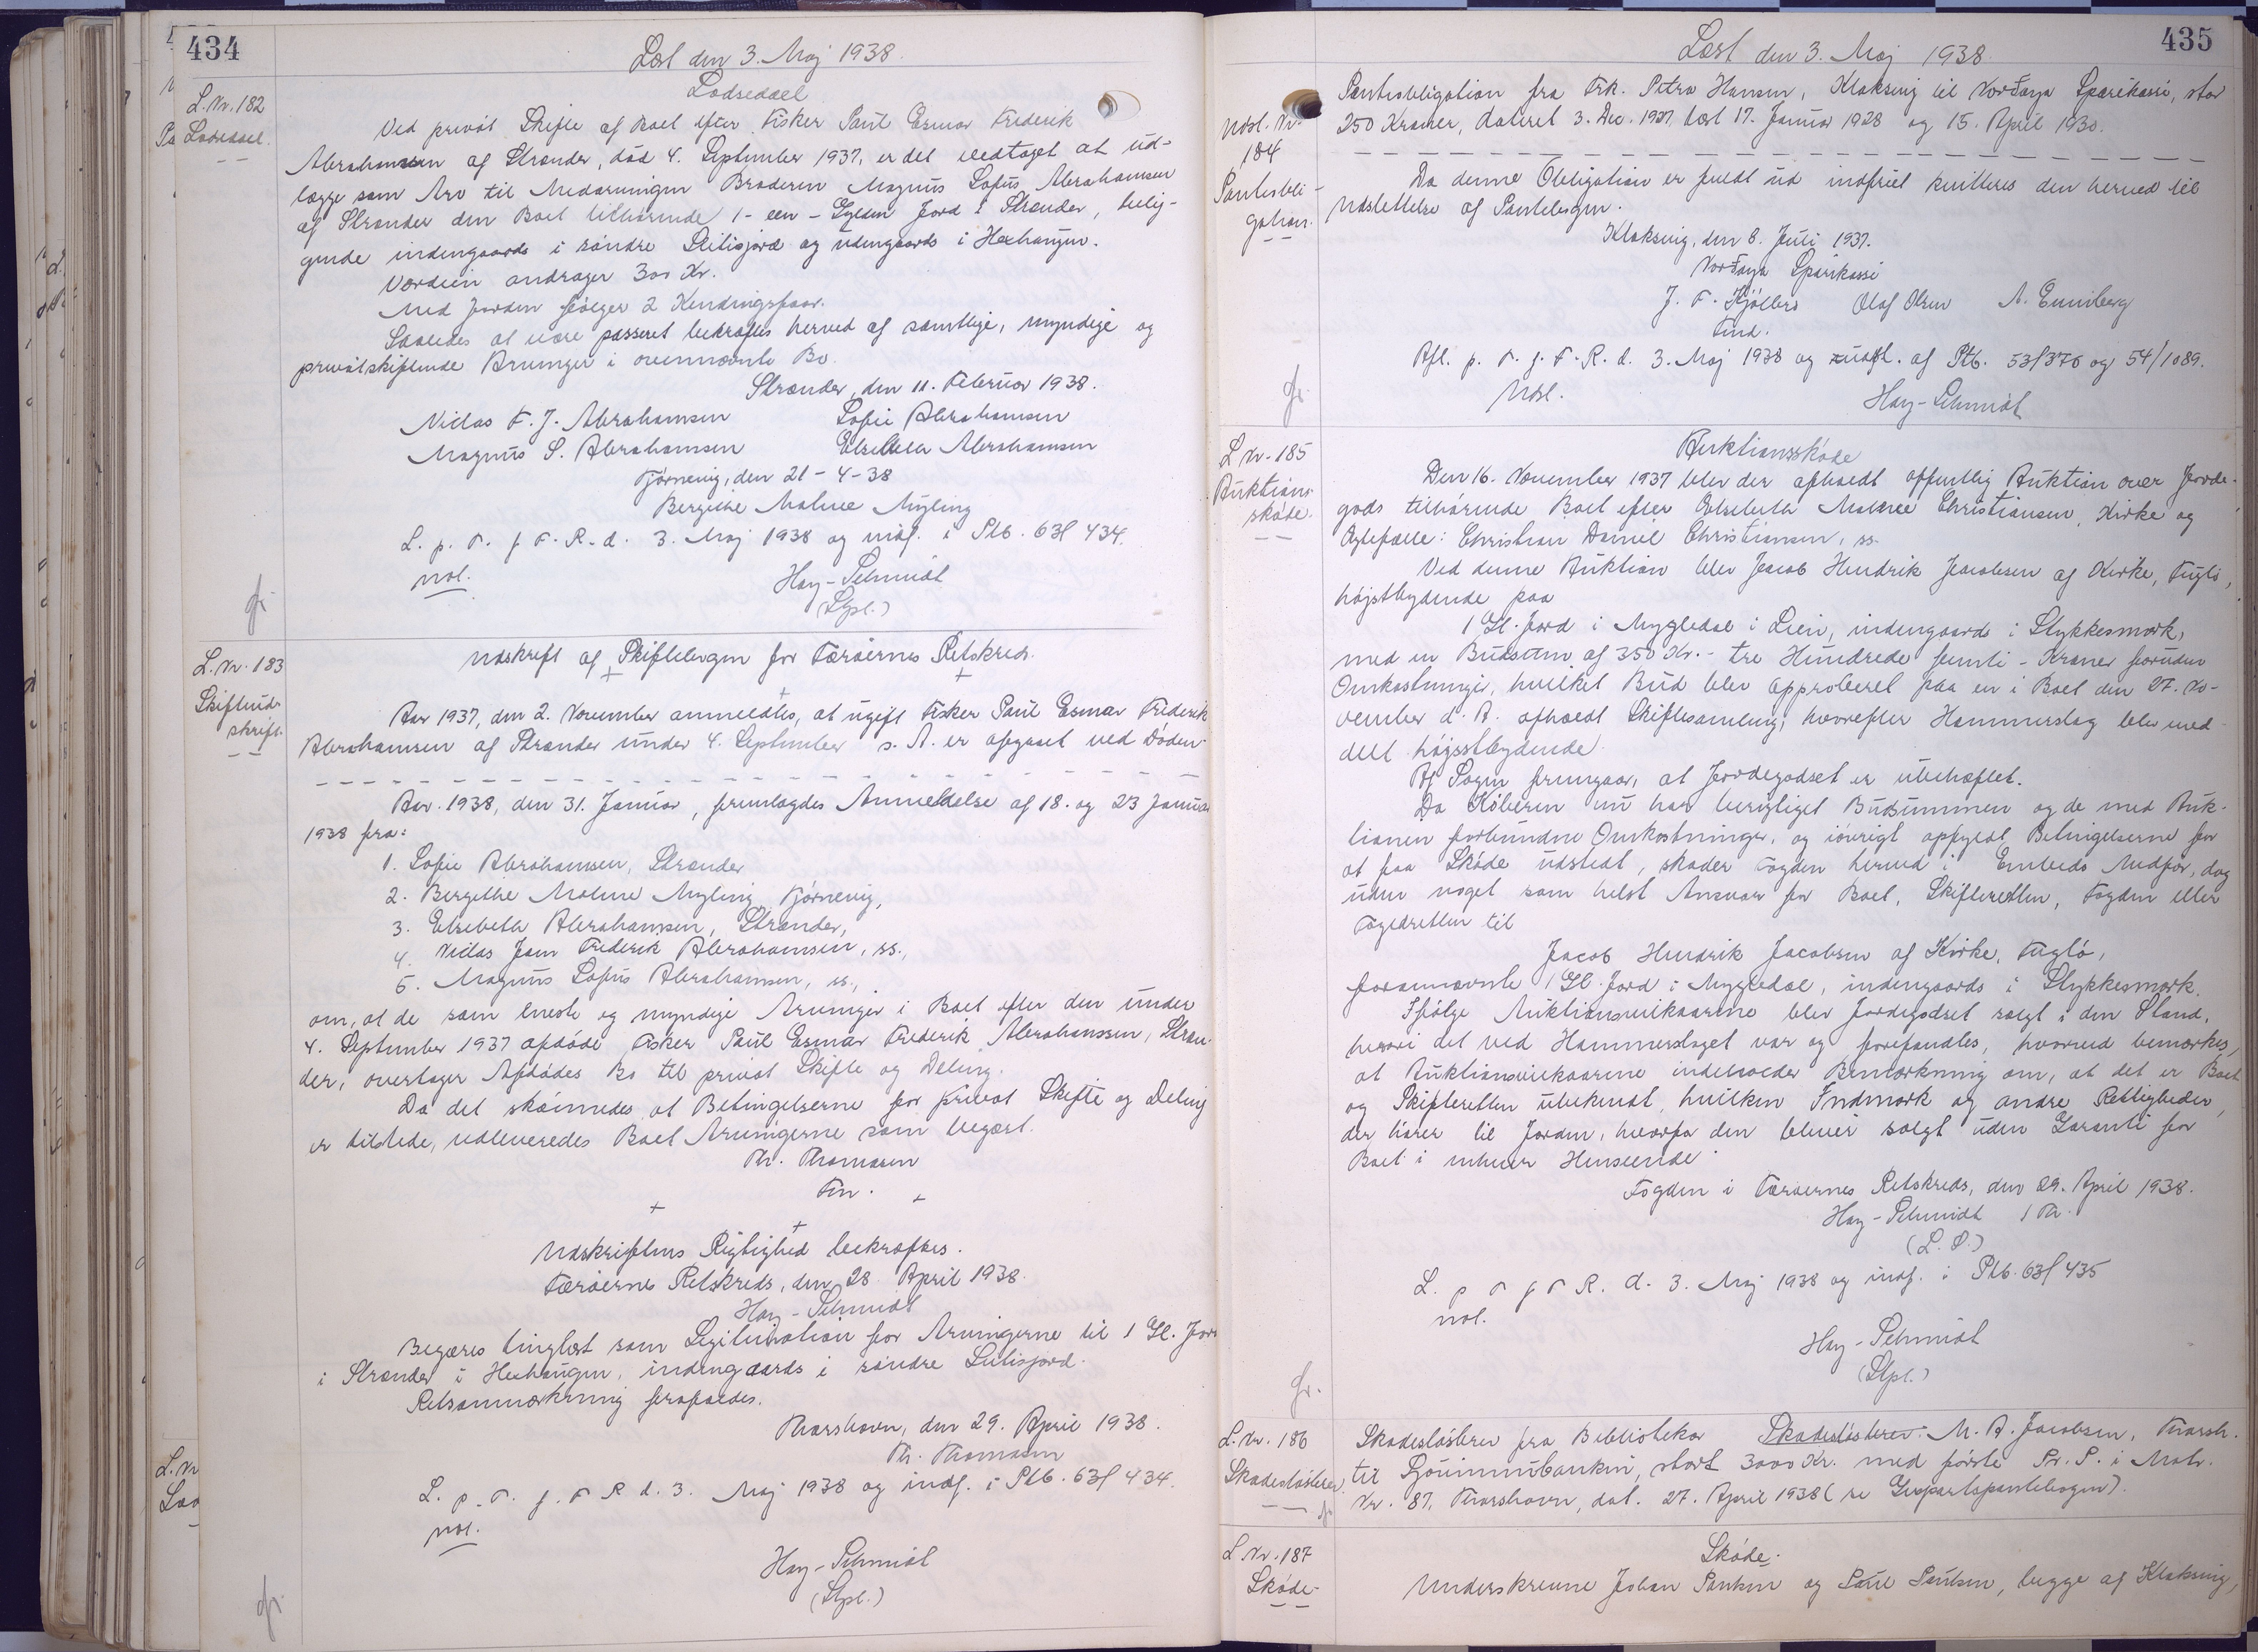 434
Læst den 3. Maj 1938.
L. Nr. 182
Lodseddel.
Lodseddel
Ved privat Skifte af Boet efter Fisker Paul Esmar Frederik
Abrahamsen af Strænder, død 4. September 1937, er det vedtaget at ud-
lægge som Arv til Medarvingen Broderen Magnus Sofus Abrahamsen
af Strænder den Boet tilhørende 1 - een - Gylden Jord i Strænder, belig-
gende indengaards i søndre og udengaards i
Værdien andrager 300 Kr.
Med Jorden følger 2 Kendingsfaar.
Saaledes at være passeret bekræftes herved af samtlige, myndige og
privatskiftende Arvinger i ovennævnte Bo.
Strænder, den 11. Februar 1938.
Niclas F. J. Abrahamsen Sofie Abrahamsen
Magnus S. Abrahamsen Elsebeth Abrahamsen
Tjørnevig, den 21-4-38
Bergithe Malene Mýling
L. p. T. f. F. R. d. 3. Maj 1938 og indf. i Ptb. 63f 434.
nol.
Hay-Schmidt
(Stpl.)
L. Nr. 183
Skifteud-
skrift.
Udskrift af Skiftebogen for Færøernes Retskreds.
Aar 1937, den 2. November anmeldtes, at ugift Fisker Paul Esmar Frederik
Abrahamsen af Strænder under 4. September s. A. er afgaaet ved Døden
Aar 1938, den 31. Januar, fremlagdes Anmeldelse af 18. og 23 Januar
1938 fra:
1. Sofie Abrahamsen, Strænder
2. Bergithe Malene Mýling Tjørnevig,
3. Elsebeth Abrahamsen, Strænder,
4. Niclas Joen Frederik Abrahamsen, ss.,
5. Magnus Sofus Abrahamsen, ss.,
om, at de som eneste og myndige Arvinger i Boet efter den under
4. September 1937 afdøde Fisker Paul Esmar Frederik Abrahamsen, Stræn-
der, overtager Afdødes Bo til privat Skifte og Deling.
Da det skønnedes at Betingelserne for privat Skifte og Deling
er tilstede, udleveredes Boet Arvingerne som begært.
Th. Thomasen
Fm.
Udskriftens Rigtighed bekræftes.
Færøernes Retskreds, den 28. April 1938.
Hay-Schmidt
Begæres tinglæst som Legitimation for Arvingerne til 1 Gl. Jord
i Strænder i indengaards i søndre
Retsanmærkning frafaldes.
Thorshavn, den 29. April 1938.
Th. Thomasen
L. p. T. f. F R d. 3. Maj 1938 og indf. i Ptb. 63f 434.
nol.
Hay-Schmidt
(Stpl.)
435
Læst den 3. Maj 1938.
Udsl. Nr.
184
Pantobli-
gation.
Pantobligation fra Frk. Petra Hansen, Klaksvig til Norðoya Sparikassi, stor
250 Kroner, dateret 3. Dec. 1927, læst 17. Januar 1928 og 15. April 1930.
Da denne Obligation er fuldt ud indfriet kvitteres den herved til
Udslettelse af Pantebogen.
Klaksvig, den 8. Juli 1937.
Norðoya Sparikassi
J. F. Kjølbro Olaf Olsen A. Enniberg
Fmd.
Afl. p. T. f. F. R. d. 3. Maj 1938 og udsl. af Ptb. 53f376 og 54/1089.
Udsl.
Hay-Schmidt
L Nr. 185
Auktions-
skøde.
Auktionsskøde
Den 16. November 1937 blev der afholdt offentlig Auktion over Jorde-
gods tilhørende Boet efter Elsebeth Malene Christiansen, Kirke og
Ægtefælle: Christian Daniel Christiansen, ss.
Ved denne Auktion blev Jacob Hendrik Jacobsen af Kirke, Fuglø,
højstbydende paa
1 Gl. Jord i Mygledal i Lien, indengaards i Stykkesmark,
med en Budsum af 350 Kr. - tre Hundrede femti - Kroner foruden
Omkostninger, hvilket Bud blev approberet paa en i Boet den 27. No-
vember d. A. afholdt Skiftesamling, hvorefter Hammerslag blev med-
delt højstbydende.
Af Sagen fremgaar, at Jordegodset er ubehæftet.
Da Køberen nu har berigtiget Budsummen og de med Auk-
tionen forbundne Omkostninger, og iøvrigt opfyldt Betingelserne for
at faa Skøde udstedt, skøder Fogden herved i Embeds Medfør, dog
uden noget som helst Ansvar for Boet, Skifteretten, Fogden eller
Fogedretten til
Jacob Hendrik Jacobsen af Kirke, Fuglø,
forannævnte 1 Gl. Jord i Mygledal, indengaards i Stykkesmark.
Ifølge Auktionsvilkaarene blev Jordegodset solgt i den Stand,
hvori det ved Hammerslaget var og forefandtes, hvorved bemærkes,
at Auktionsvilkaarene indeholder Bemærkning om, at det er Boet
og Skifteretten ubekendt, hvilken Indmark og andre Rettigheder,
der hører til Jorden, hvorfor den bliver solgt uden Garanti for
Boet i enhver Henseende.
Fogden i Færøernes Retskreds, den 29. April 1938.
Hay-Schmidt / Th.
(L. S.)
L. p T f F R. d. 3. Maj 1938 og indf. i Ptb. 63f 435
nol.
Hay-Schmidt
(Stpl.)
L. Nr. 186
Skadesløsbrev.
Skadesløsbrev fra Bibliotekar Skadesløsbrev: M. A. Jacobsen, Thorsh.
til Sjóvinnubankin, stort 3000 Kr. med første Pr. P. i Matr.
Nr. 87, Thorshavn, dat. 27. April 1938 (se Genpartspantebogen).
L. Nr. 187
Skøde.
Skøde.
Underskrevne Johan Poulsen og Paul Poulsen, begge af Klaksvig,